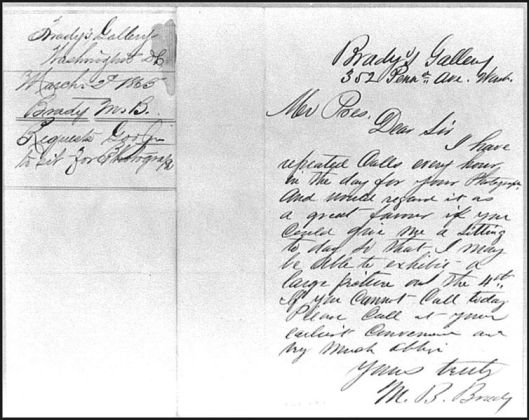 Brady's Gallery
Washington DC
March 2d 1865
Brady M. B.
Requests
to sit for Photograph
Brady's Gallery
352 Penna. Ave. Wash.
Mr Pres.
Dear Sir
I have
repeated Calls every hour
in the day for your Photograph
and would regard it as
a great favor if you
could give me a sitting
to day so that I may
be able to exhibit a
large picture on the 4th.
If you cannot Call today
Please Call at your
earliest convenience and
very much oblige
Yours truly
M. B. Brady